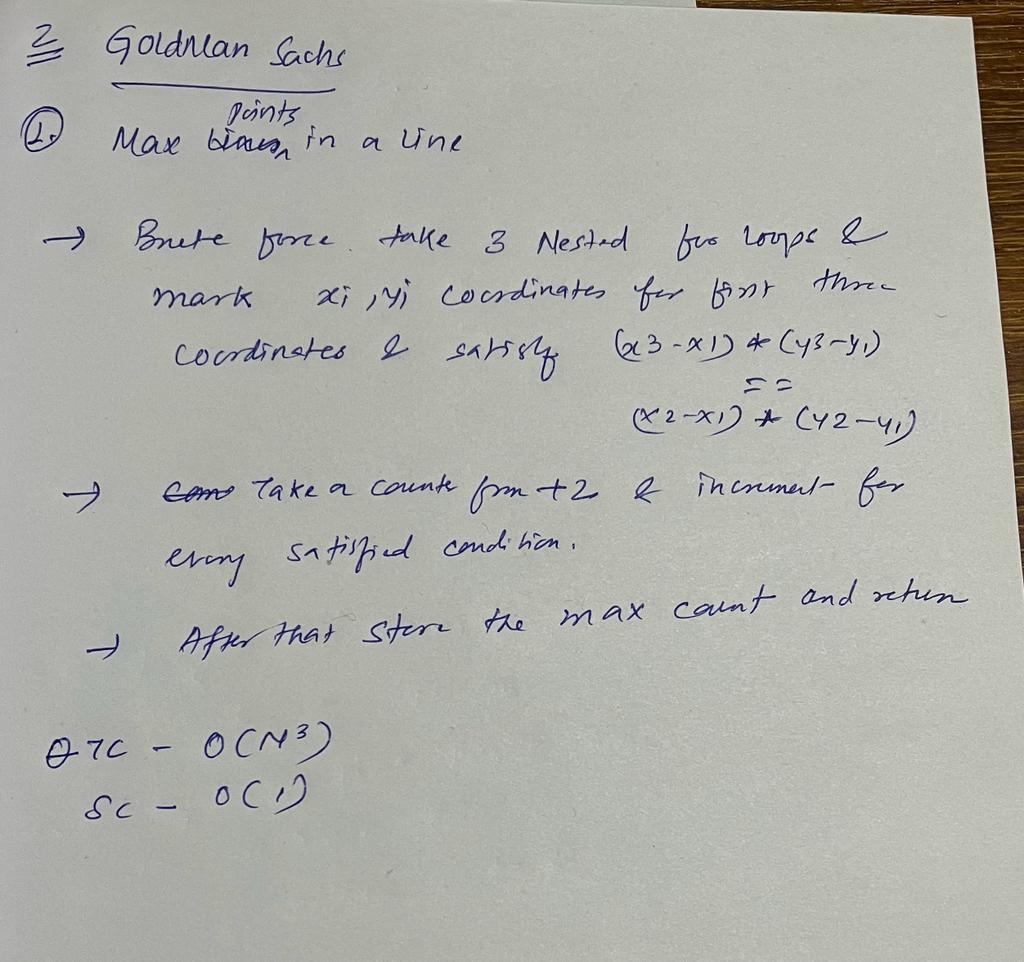 2 Goldman Sachs
1. Max points in a line
→ Brute force. take 3 Nested for loops &
mark xi, yi coordinates for first three
coordinates & satisfy (x3-x1) * (y3-y1)
==
(x2-x1) * (y2-y1)
→ Take a counte from +2 & increment for
every satisfied condition.
→ After that store the max count and return
TC - O(N³)
SC - O(1)